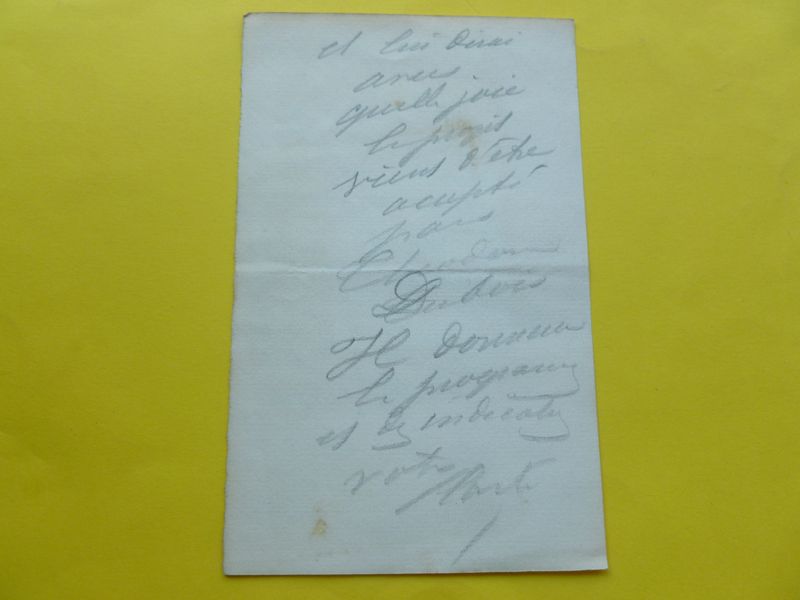 et lui dirai
avec
quelle joie
le projet
viens d'être
accepté
par
Theodore
Dubois
Il donnera
le programme
et des indications
votre